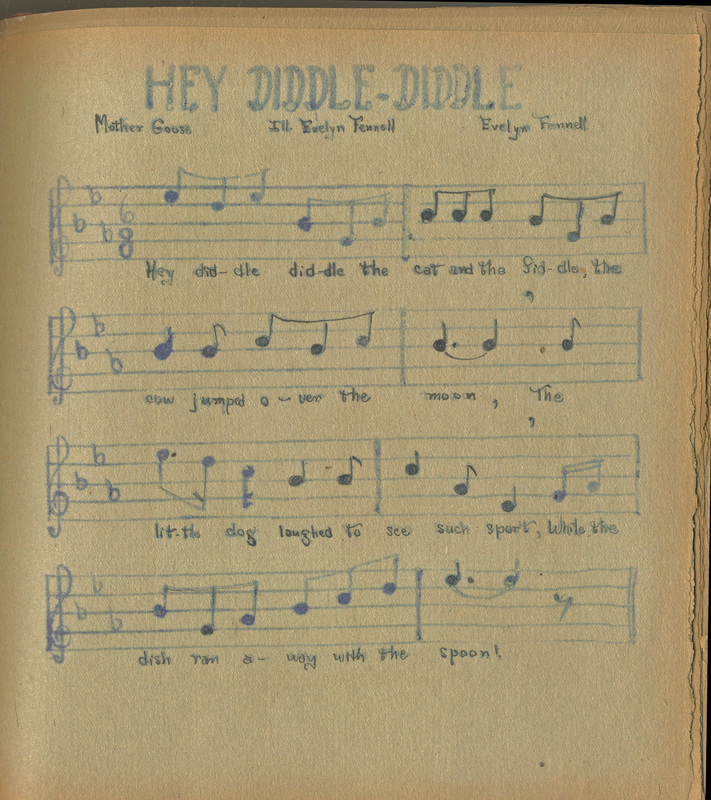 HEY DIDDLE-DIDDLE
Mother Goose Ill. Evelyn Fennell Evelyn Fennell
6 8
Hey did- dle did-dle the cat and the fid-dle, the
cow jumped o - ver the moon, The
lit-tle dog laughed to see such sport, While the
dish ran a- way with the spoon!